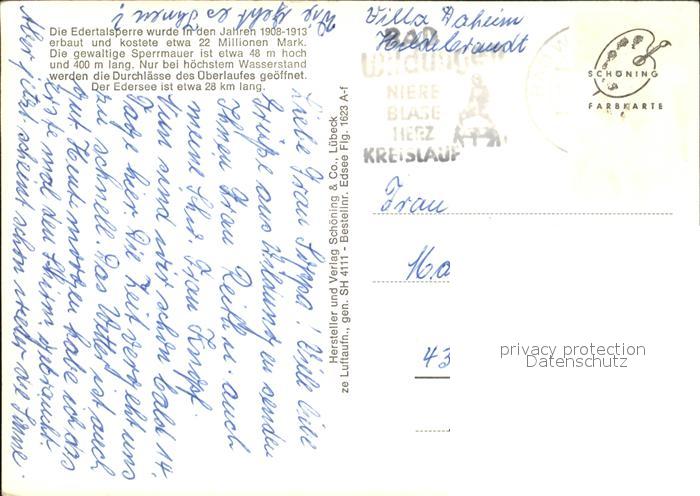 Die Edertalsperre wurde in den Jahren 1908-1913
erbaut und kostete etwa 22 Millionen Mark.
Die gewaltige Sperrmauer ist etwa 48 m hoch
und 400 m lang. Nur bei höchstem Wasserstand
werden die Durchlässe des Oberlaufes geöffnet.
Der Edersee ist etwa 28 km lang.
Wie geht es Ihnen?
Liebe Frau Viele liebe
Grüße aus Wildungen senden
Ihnen Frau Reith u. auch
meine Frau Knopf
Nun sind wir schon bald 14
Tage hier. Die Zeit vergeht uns
zu schnell. Das Wetter ist auch
gut Heute morgen habe ich das
erste mal den Schirm gebraucht.
Aber jetzt scheint schon wieder die Sonne.
Hersteller und Verlag Schöning & Co., Lübeck
ze Luftaufn., gen. SH 4111 - Bestellnr. Edsee Flg. 1623 A-f
Villa Daheim
Hildebrandt
BAD
Wildungen
NIERE
BLASE
HERZ
KREISLAUF
SCHÖNING
FARBKARTE
Frau
Ma
43
privacy protection
Datenschutz